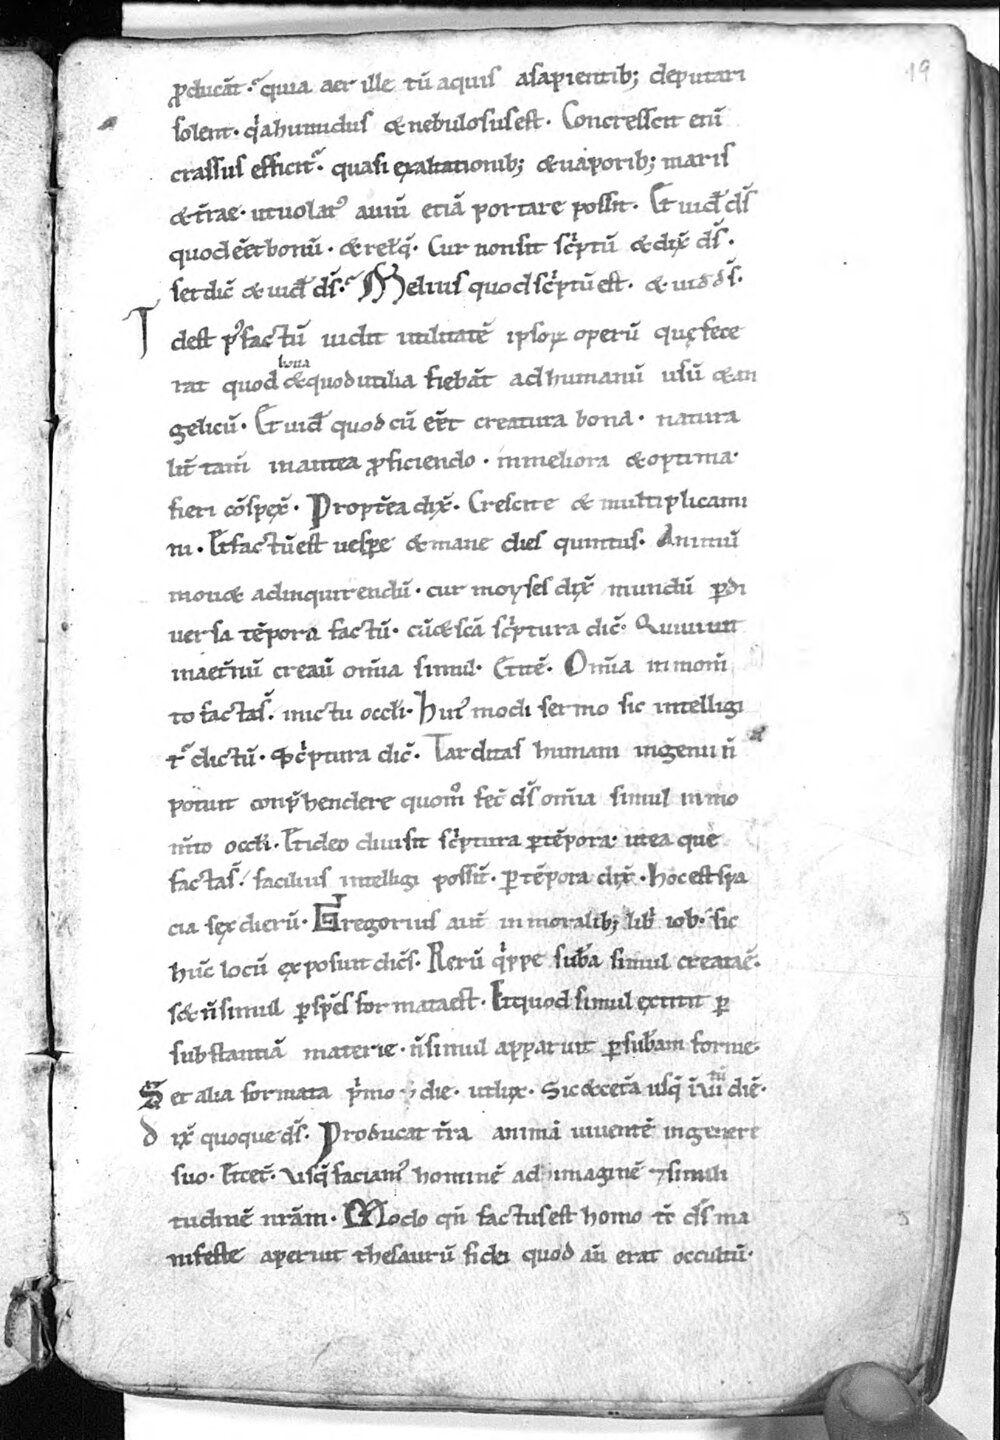 19
ꝓducāt · quia aer ille tū aquis a sapientib; deputari
solent · qͥa humidus & nebulosus est · Concrescit enī
crassus efficit᷑ · quasi exalationib; & uaporib; maris
& t̄rae · ut uolat᷒ auiū etiā portare possit · Et uid̄ ds̄
quod eēt bonū · & relq̄ · Cur non sit scͥptū & dix̄ ds̄ ·
set dic̄ & uid̄ ds̄ · Melius quod scͥptū est · & uid̄ ds̄ ·
Idest p᷒ factū uidit utilitatē ipsoꝝ operū quę fece
rat quod bona & quod utilia fiebāt ad humanū usū & an
gelicū · Et uid̄ quod cū eēt creatura bona · natura
lit̄ tam̄ in antea ꝓficiendo · in meliora & optima ·
fieri cōspex̄ · Propt̄ea dix̄ · Crescite & multiplicami
ni · Et factū est uesꝑe & mane dies quintus · Animū
mou& ad inquirendū · cur moyses dix̄ mundū ꝑ di
uersa tēpora factū · cū & sc̄a scͥptura dic̄ · Qui uiuit
in aet̄nū creau̅ om̄ia simul · Et itē · Om̄ia in mom̄
to facta s̄ · in ictu oc̄li · Hui᷒ modi sermo sic intelligi
t᷑ dictū · Scͥptura dic̄ · Tarditas humani ingenii n̄
potuit conp̄hendere quomͦ fec̄ ds̄ om̄ia simul in mo
m̄to oc̄li · Et ideo diuisit scͥptura ꝑ tēpora · ut ea que
facta s̄ · facilius intelligi possit̄ · ꝑ tēpora dix̄ · Hoc est spa
cia sex dierū · Gregorius aut̄ in moralib; lib̄ iob · sic
hūc locū exposuit dic̄s · Rerū qͥppe sub̄a simul creata ē ·
s& n̄ simul ꝑ spēs formata est · Et quod simul extitit ꝑ
substantiā materie · n̄ simul apparuit ꝑ sub̄am forme ·
Set alia formata pͥmo die · ut lux · Sic & cet̄a usq̄ in vi tū diē ·
Dix̄ quoque ds̄ · Producat t̄ra animā uiuentē in genere
suo · Et cet̄ · Usq̄ faciam᷒ hominē ad imaginē ⁊ simili
tudinē nr̄am · Modo qn̄ factus est homo tr̄ ds̄ ma
nifeste aperuit thesaurū fidei quod an̄ erat occultū ·